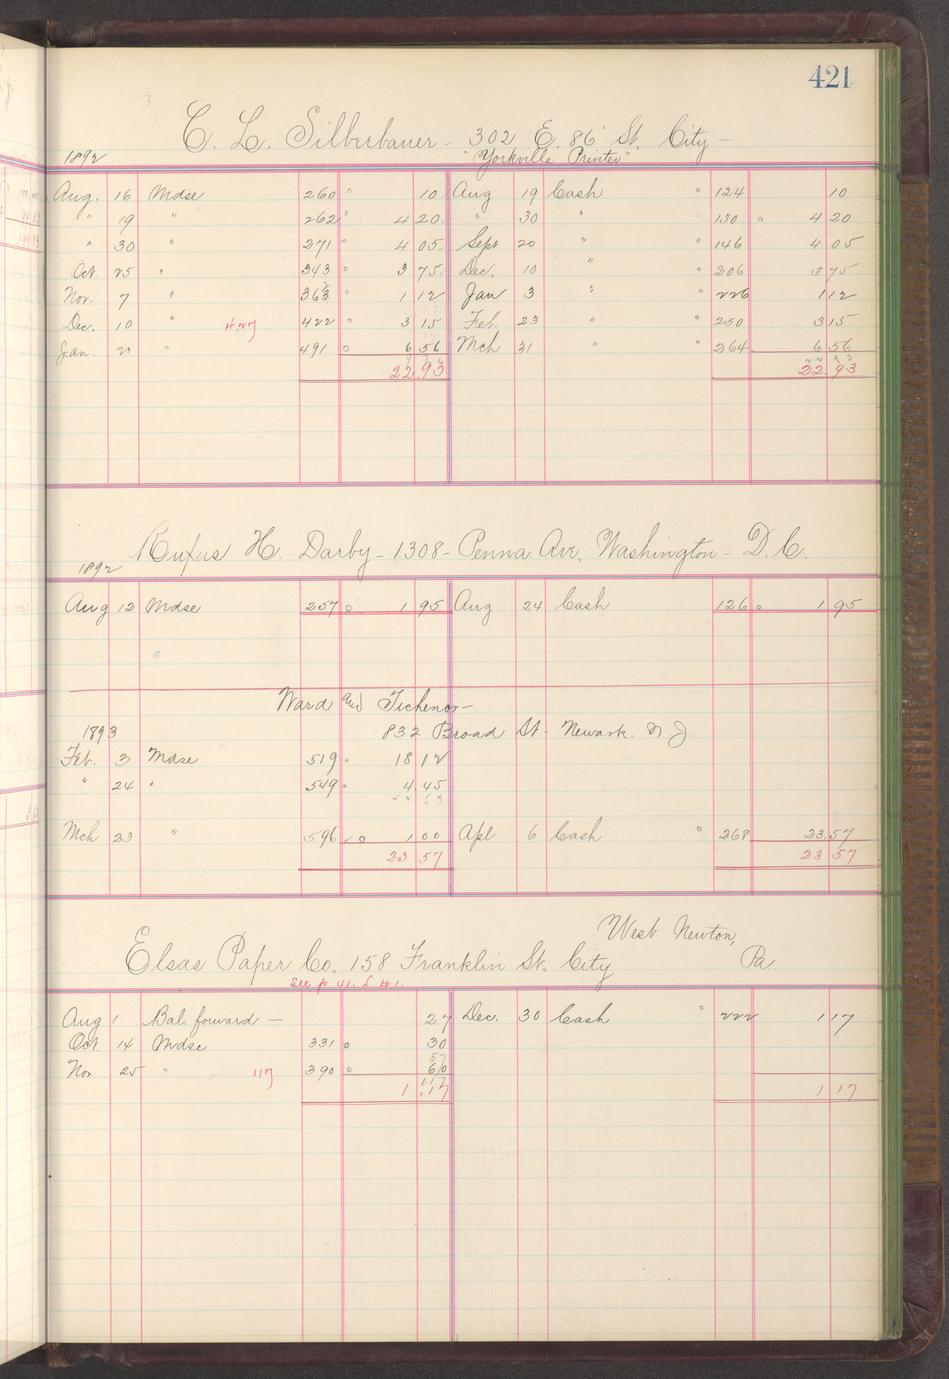 421
C. L. Silberbauer - 302 E. 86 St. City -
1892 "Yorkville Printer"
Aug. 16 Mdse 260 10 Aug 19 Cash 124 10
" 19 " 262 4 20 " 30 " 130 4 20
" 30 " 271 4 05 Sept 20 " 146 4 05
Oct 25 " 343 3 75 Dec. 10 " 206 3 75
Nov. 7 " 363 1 12 Jan 3 " 226 1 12
Dec. 10 " 427 422 3 15 Feb. 23 " 250 3 15
Jan. 21 " 491 6 56 Mch 31 " 264 6 56
22 93 22 93
22.93 22.93
Rufus H. Darby - 1308 - Penna Ave, Washington - D.C.
1892
Aug 12 Mdse 257 1 95 Aug 24 Cash 126 1 95
Ward and Tichenor -
1893 832 Broad St. Newark. N.J.
Feb. 3 Mdse 519 18 12
" 24 " 549 4 45
22 57
Mch 23 " 596 1 00 Apl 6 Cash 268 23.57
23 57 23 57
West Newton,
Elsas Paper Co. 158 Franklin St. City Pa.
See p 41. L #1.
Aug 1 Bal. forward - 27 Dec. 30 Cash 222 1 17
Oct 14 Mdse 331 30
57
Nov 25 " 117 390 60
1.17
1 17 1 17